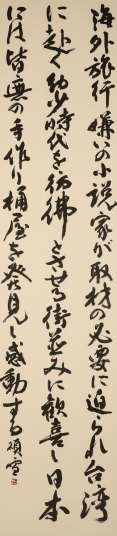 海外旅行嫌いの小説家が取材の必要に迫られ台湾
に赴く幼少時代を彷彿とさせる街並みに歓喜し日本
には皆無の手作り桶屋を発見し感動する 碩雪